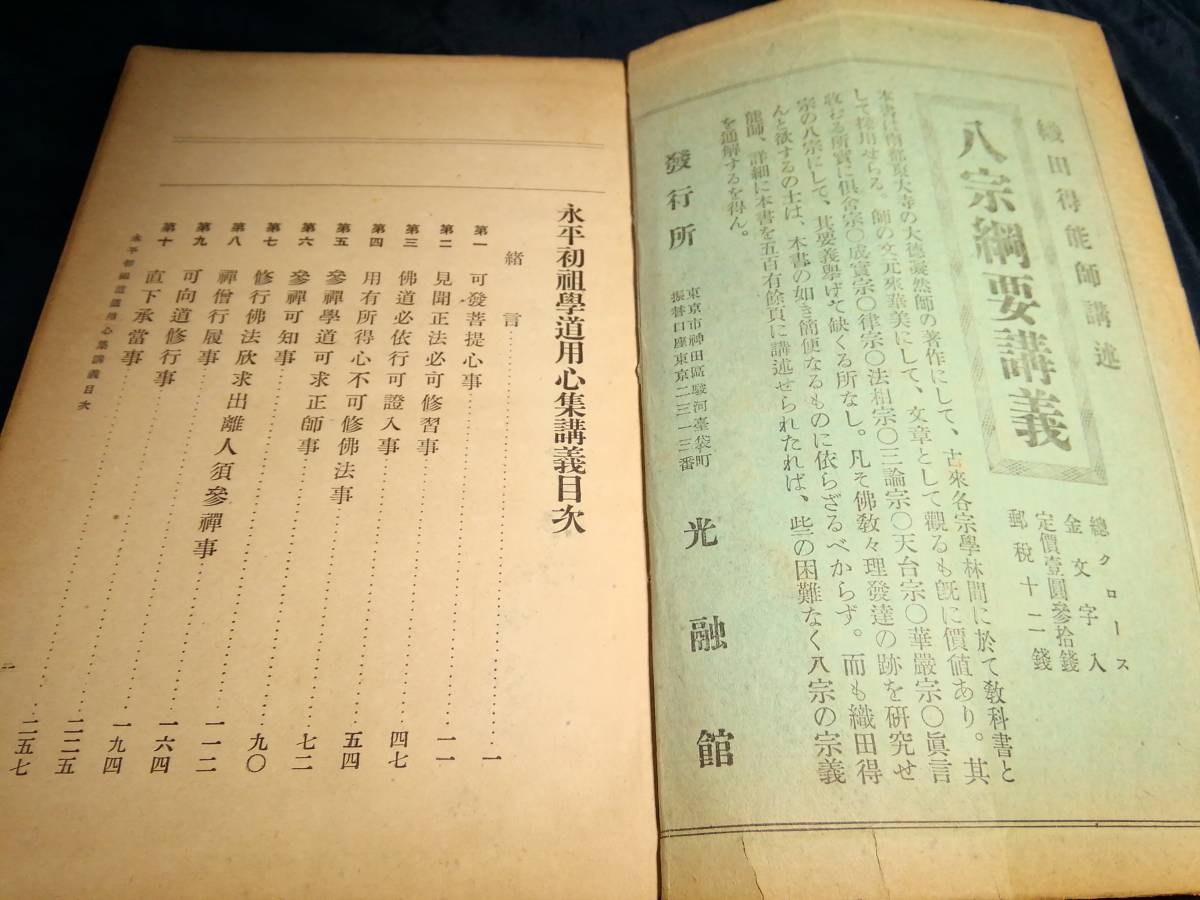 織田得能師講述
八宗綱要講義
總クロース
金文字入
定價壹圓參拾錢
郵税十二錢
本書は南都東大寺の大德凝然師の著作にして、古來各宗學林間に於て敎科書と
して採用せらる。師の文元來華美にして、文章として觀るも旣に價値あり。其
收むる所實に俱舍宗〇成實宗〇律宗〇法相宗〇三論宗〇天台宗〇華嚴宗〇眞言
宗の八宗にして、其要義擧げて缺くる所なし。凡そ佛敎々理發達の跡を硏究せ
んと欲するの士は、本書の如き簡便なるものに依らざるべからず。而も織田得
能師、詳細に本書を五百有餘頁に講述せられたれば、些の困難なく八宗の宗義
を通解するを得ん。
發行所
東京市神田區駿河臺袋町
振替口座東京二三一三番
光融館
永平初祖學道用心集講義目次
緖言……一
第一 可發菩提心事……一一
第二 見聞正法必可修習事……四七
第三 佛道必依行可證入事……五四
第四 用有所得心不可修佛法事……七二
第五 參禪學道可求正師事……九〇
第六 參禪可知事……一一二
第七 修行佛法欣求出離人須參禪事……一六四
第八 禪僧行履事……一九四
第九 可向道修行事……二二五
第十 直下承當事……二五七
永平初祖學道用心集講義目次
一